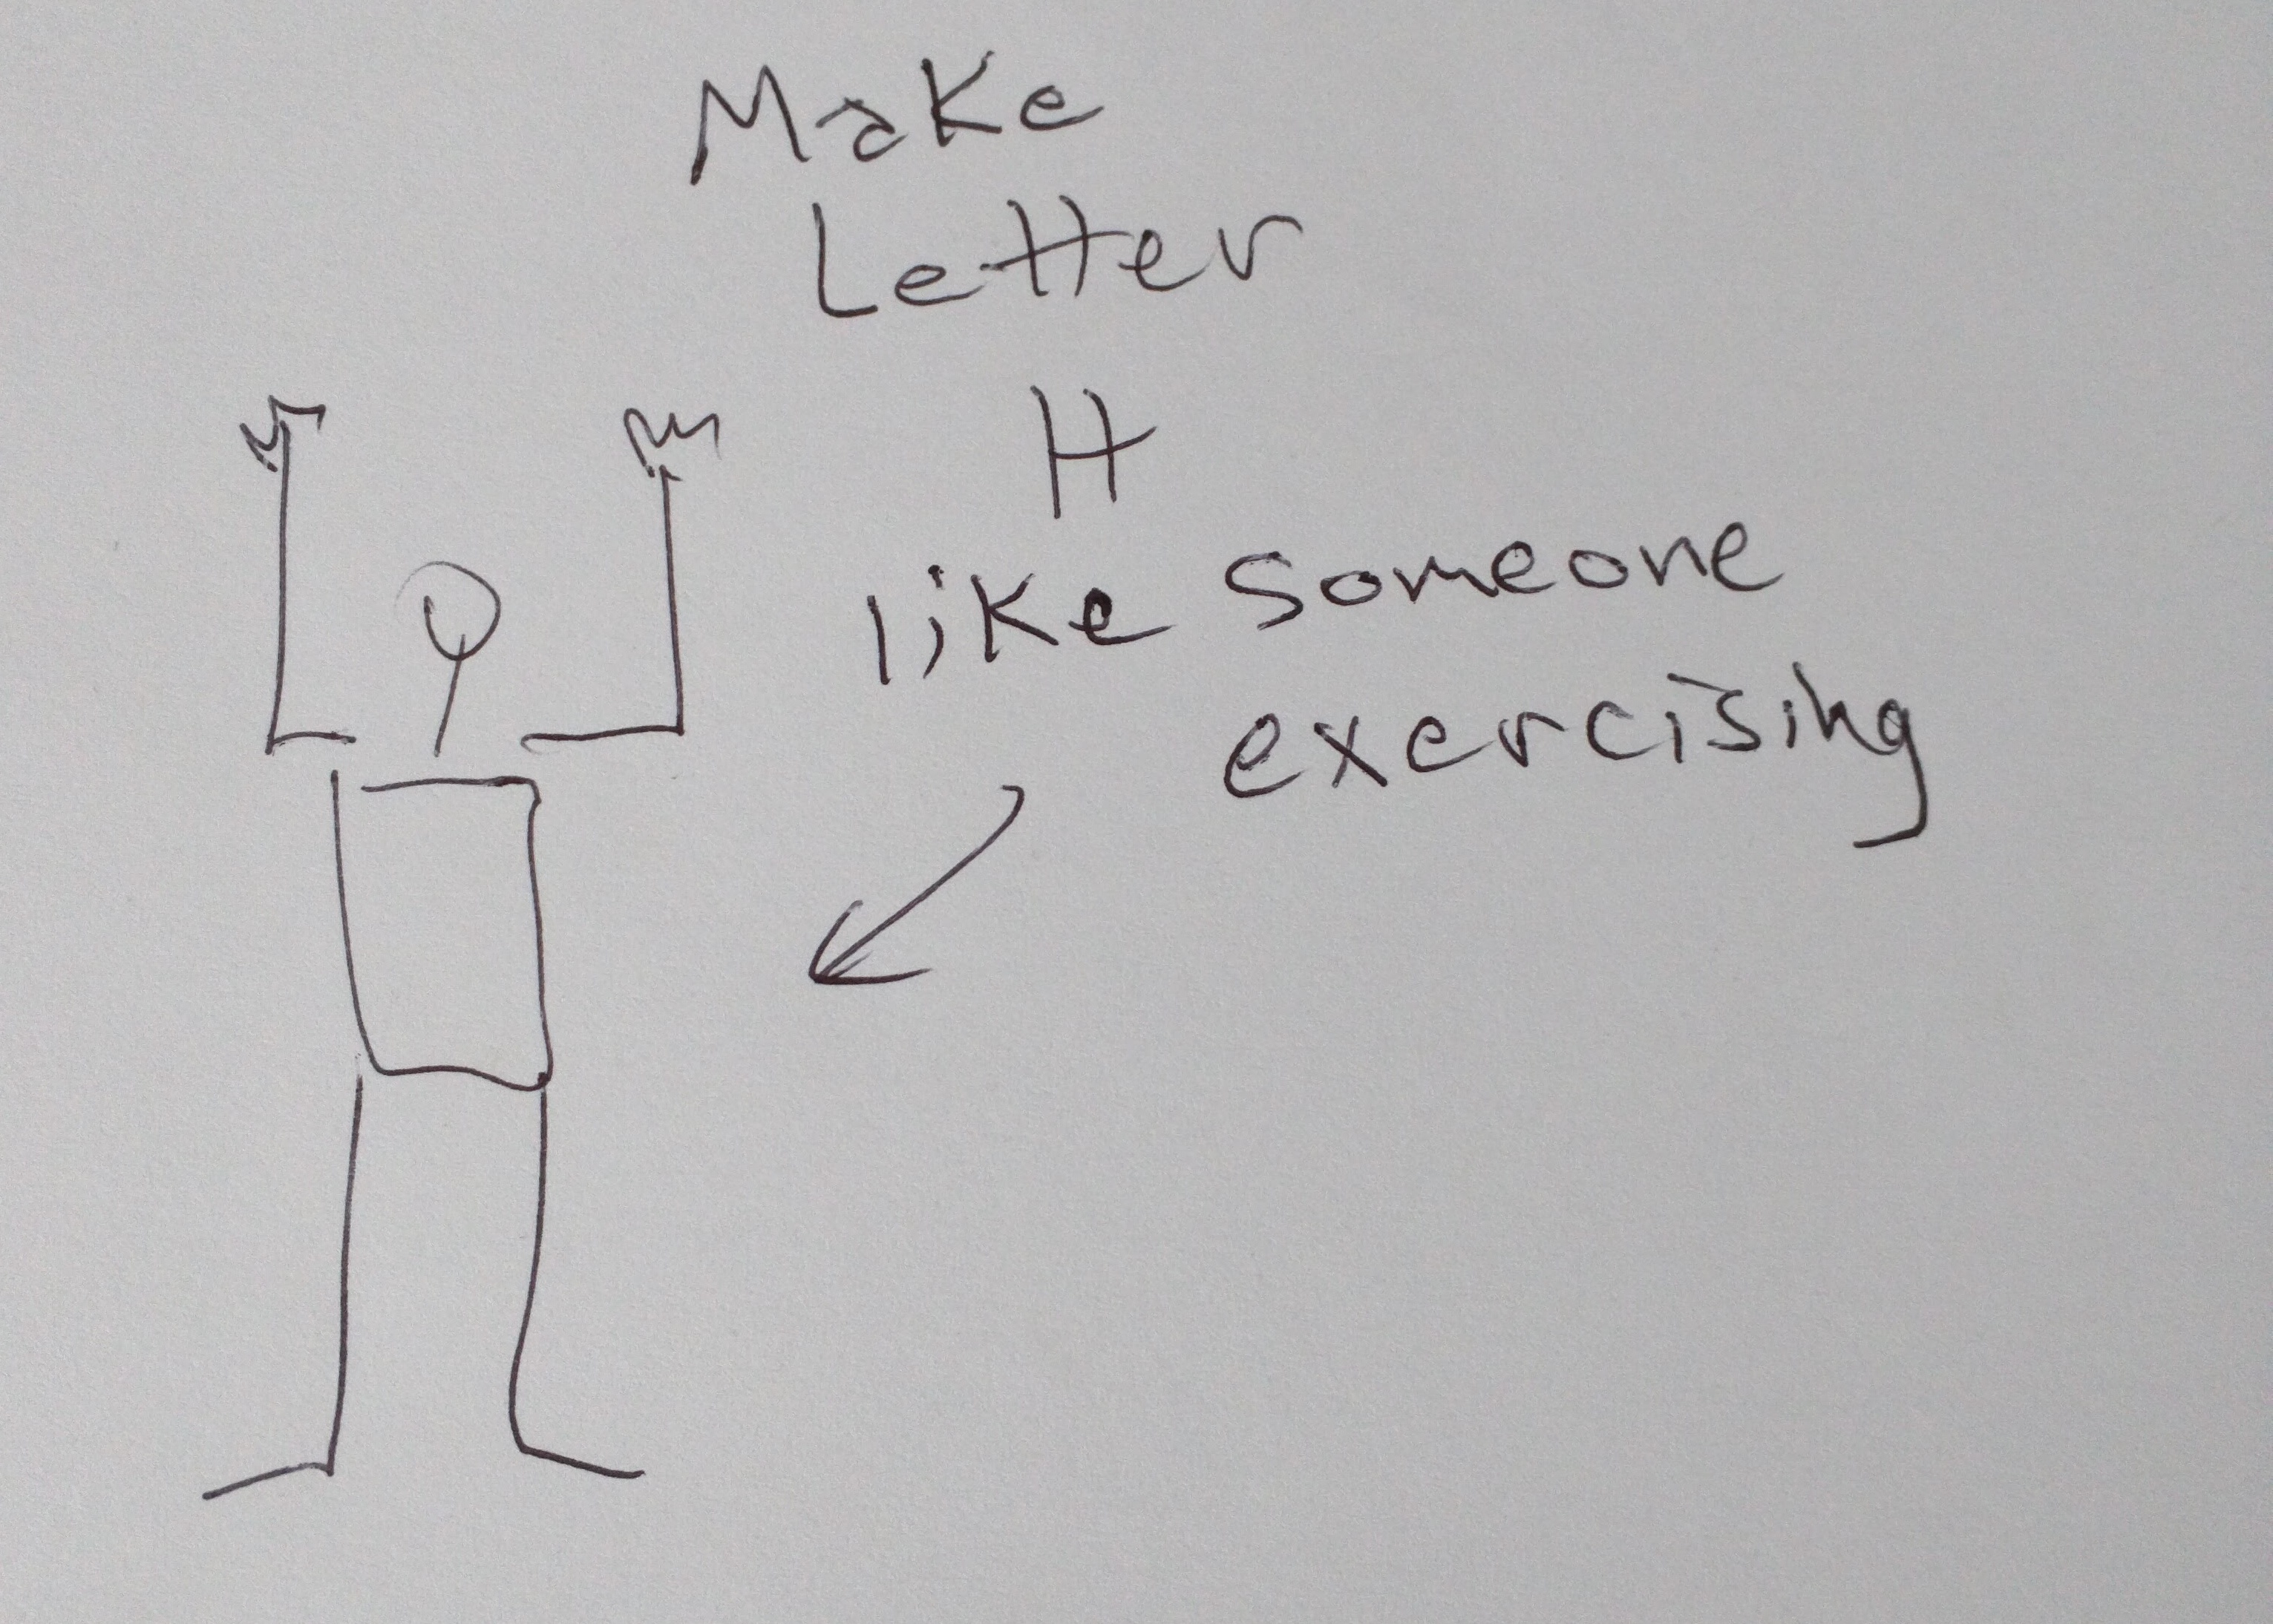 Make
Letter
H
like someone
exercising